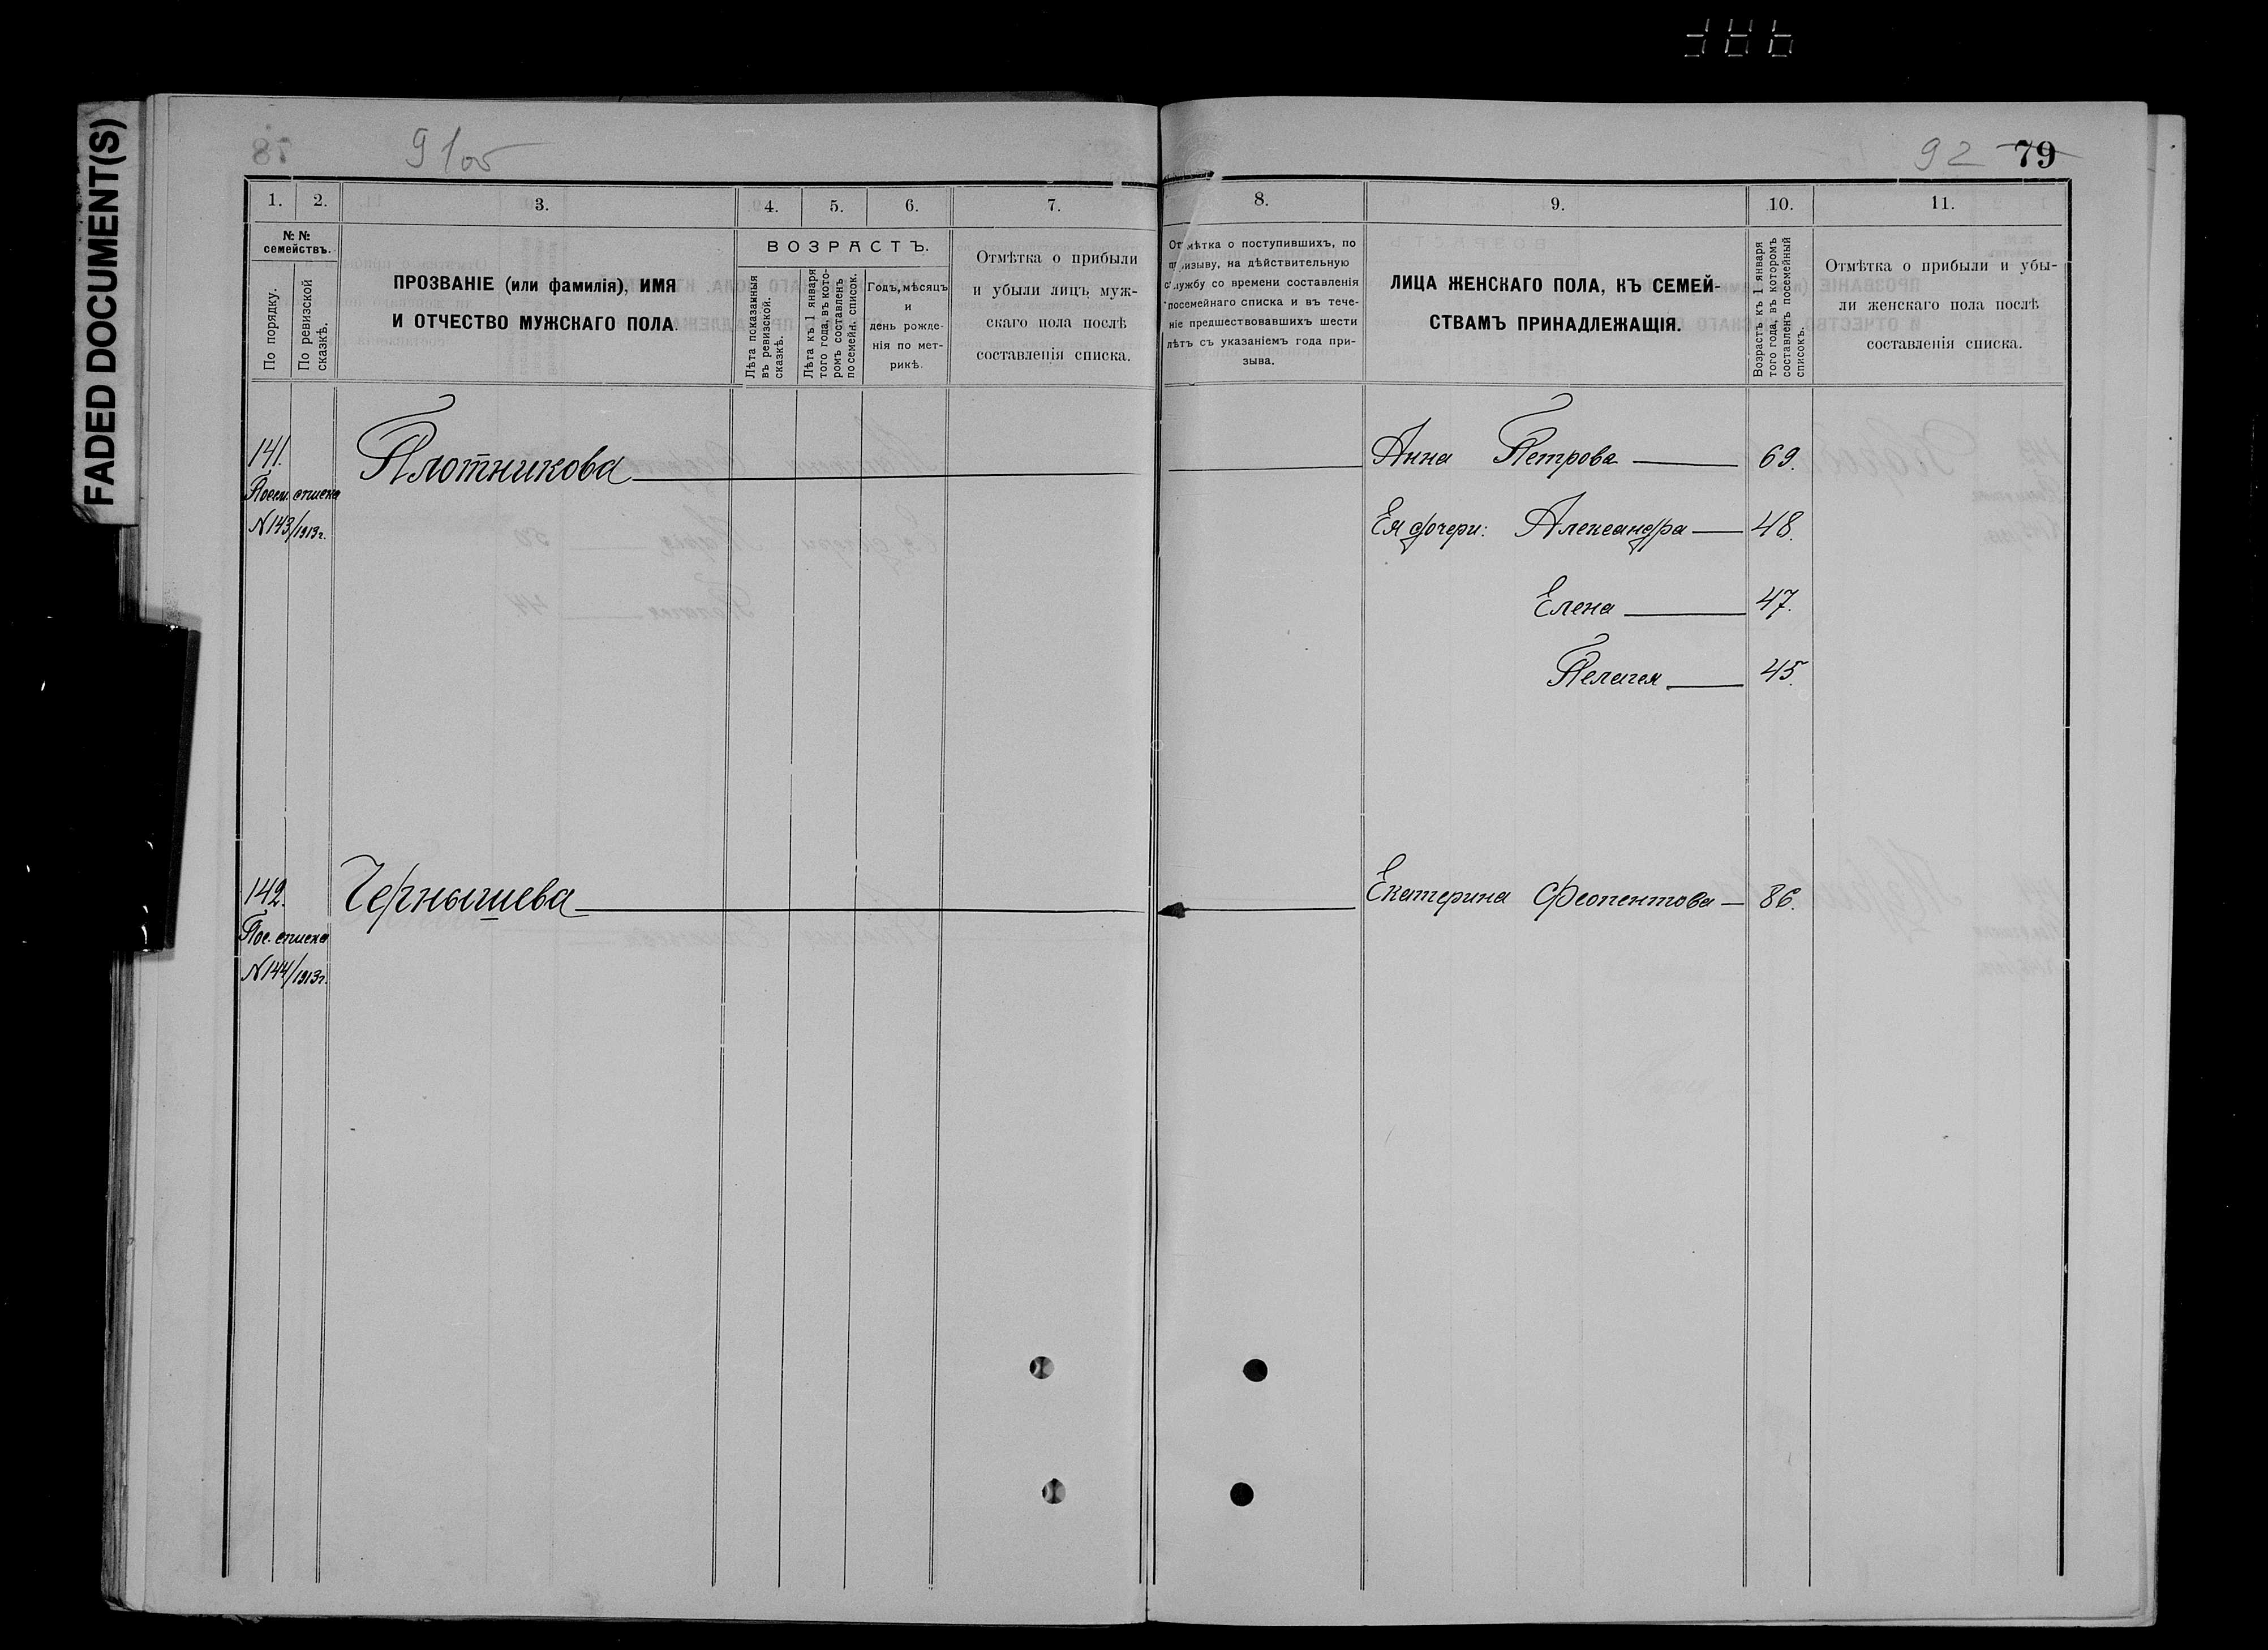 FADED DOCUMENT(S)
91об
92 79
1. 2. 3. 4. 5. 6. 7. 8. 9. 10. 11.
№ №
семействъ.
По порядку.
По ревизской
сказкѣ.
ПРОЗВАНІЕ (или фамилія), ИМЯ
И ОТЧЕСТВО МУЖСКАГО ПОЛА.
ВОЗРАСТЪ.
Лѣта показамныя
въ ревизской.
сказкѣ.
Лѣта къ 1 января
того года, въ кото-
ромъ составленъ
посемейн. список.
Годъ, мѣсяцъ
и
день рожде-
нія по мет-
рикѣ.
Отмѣтка о прибыли
и убыли лицъ муж-
скаго пола послѣ
составленія списка.
Отмѣтка о поступившихъ, по
призыву, на дѣйствительную
службу со времени составленія
посемейнаго списка и въ тече-
ніе предшествовавшихъ шести
лѣтъ съ указаніемъ года при-
зыва.
ЛИЦА ЖЕНСКАГО ПОЛА, КЪ СЕМЕЙ-
СТВАМЪ ПРИНАДЛЕЖАЩІЯ.
Возрастъ къ 1 января
того года, въ которомъ
составленъ посемейный
списокъ.
Отмѣтка о прибыли и убы-
ли женскаго пола послѣ
составленія списка.
141. Плотникова Анна Петрова 69.
Посем. списка
N143/1913г.
Ея дочери: Александра 48.
Елена 47.
Пелагея 45.
142. Чернышева Екатерина Феопентова 86.
Пос. списка
N144/1913г.